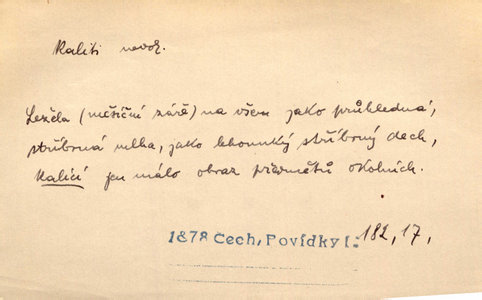 Kaliti nedok.
Ležela (měsíční záře) na všem jako průhledná,
stříbrná mlha, jako lehounký stříbrný dech,
kalící jen málo obraz předmětů okolních.
1878 Čech, Povídky I. 182, 17,